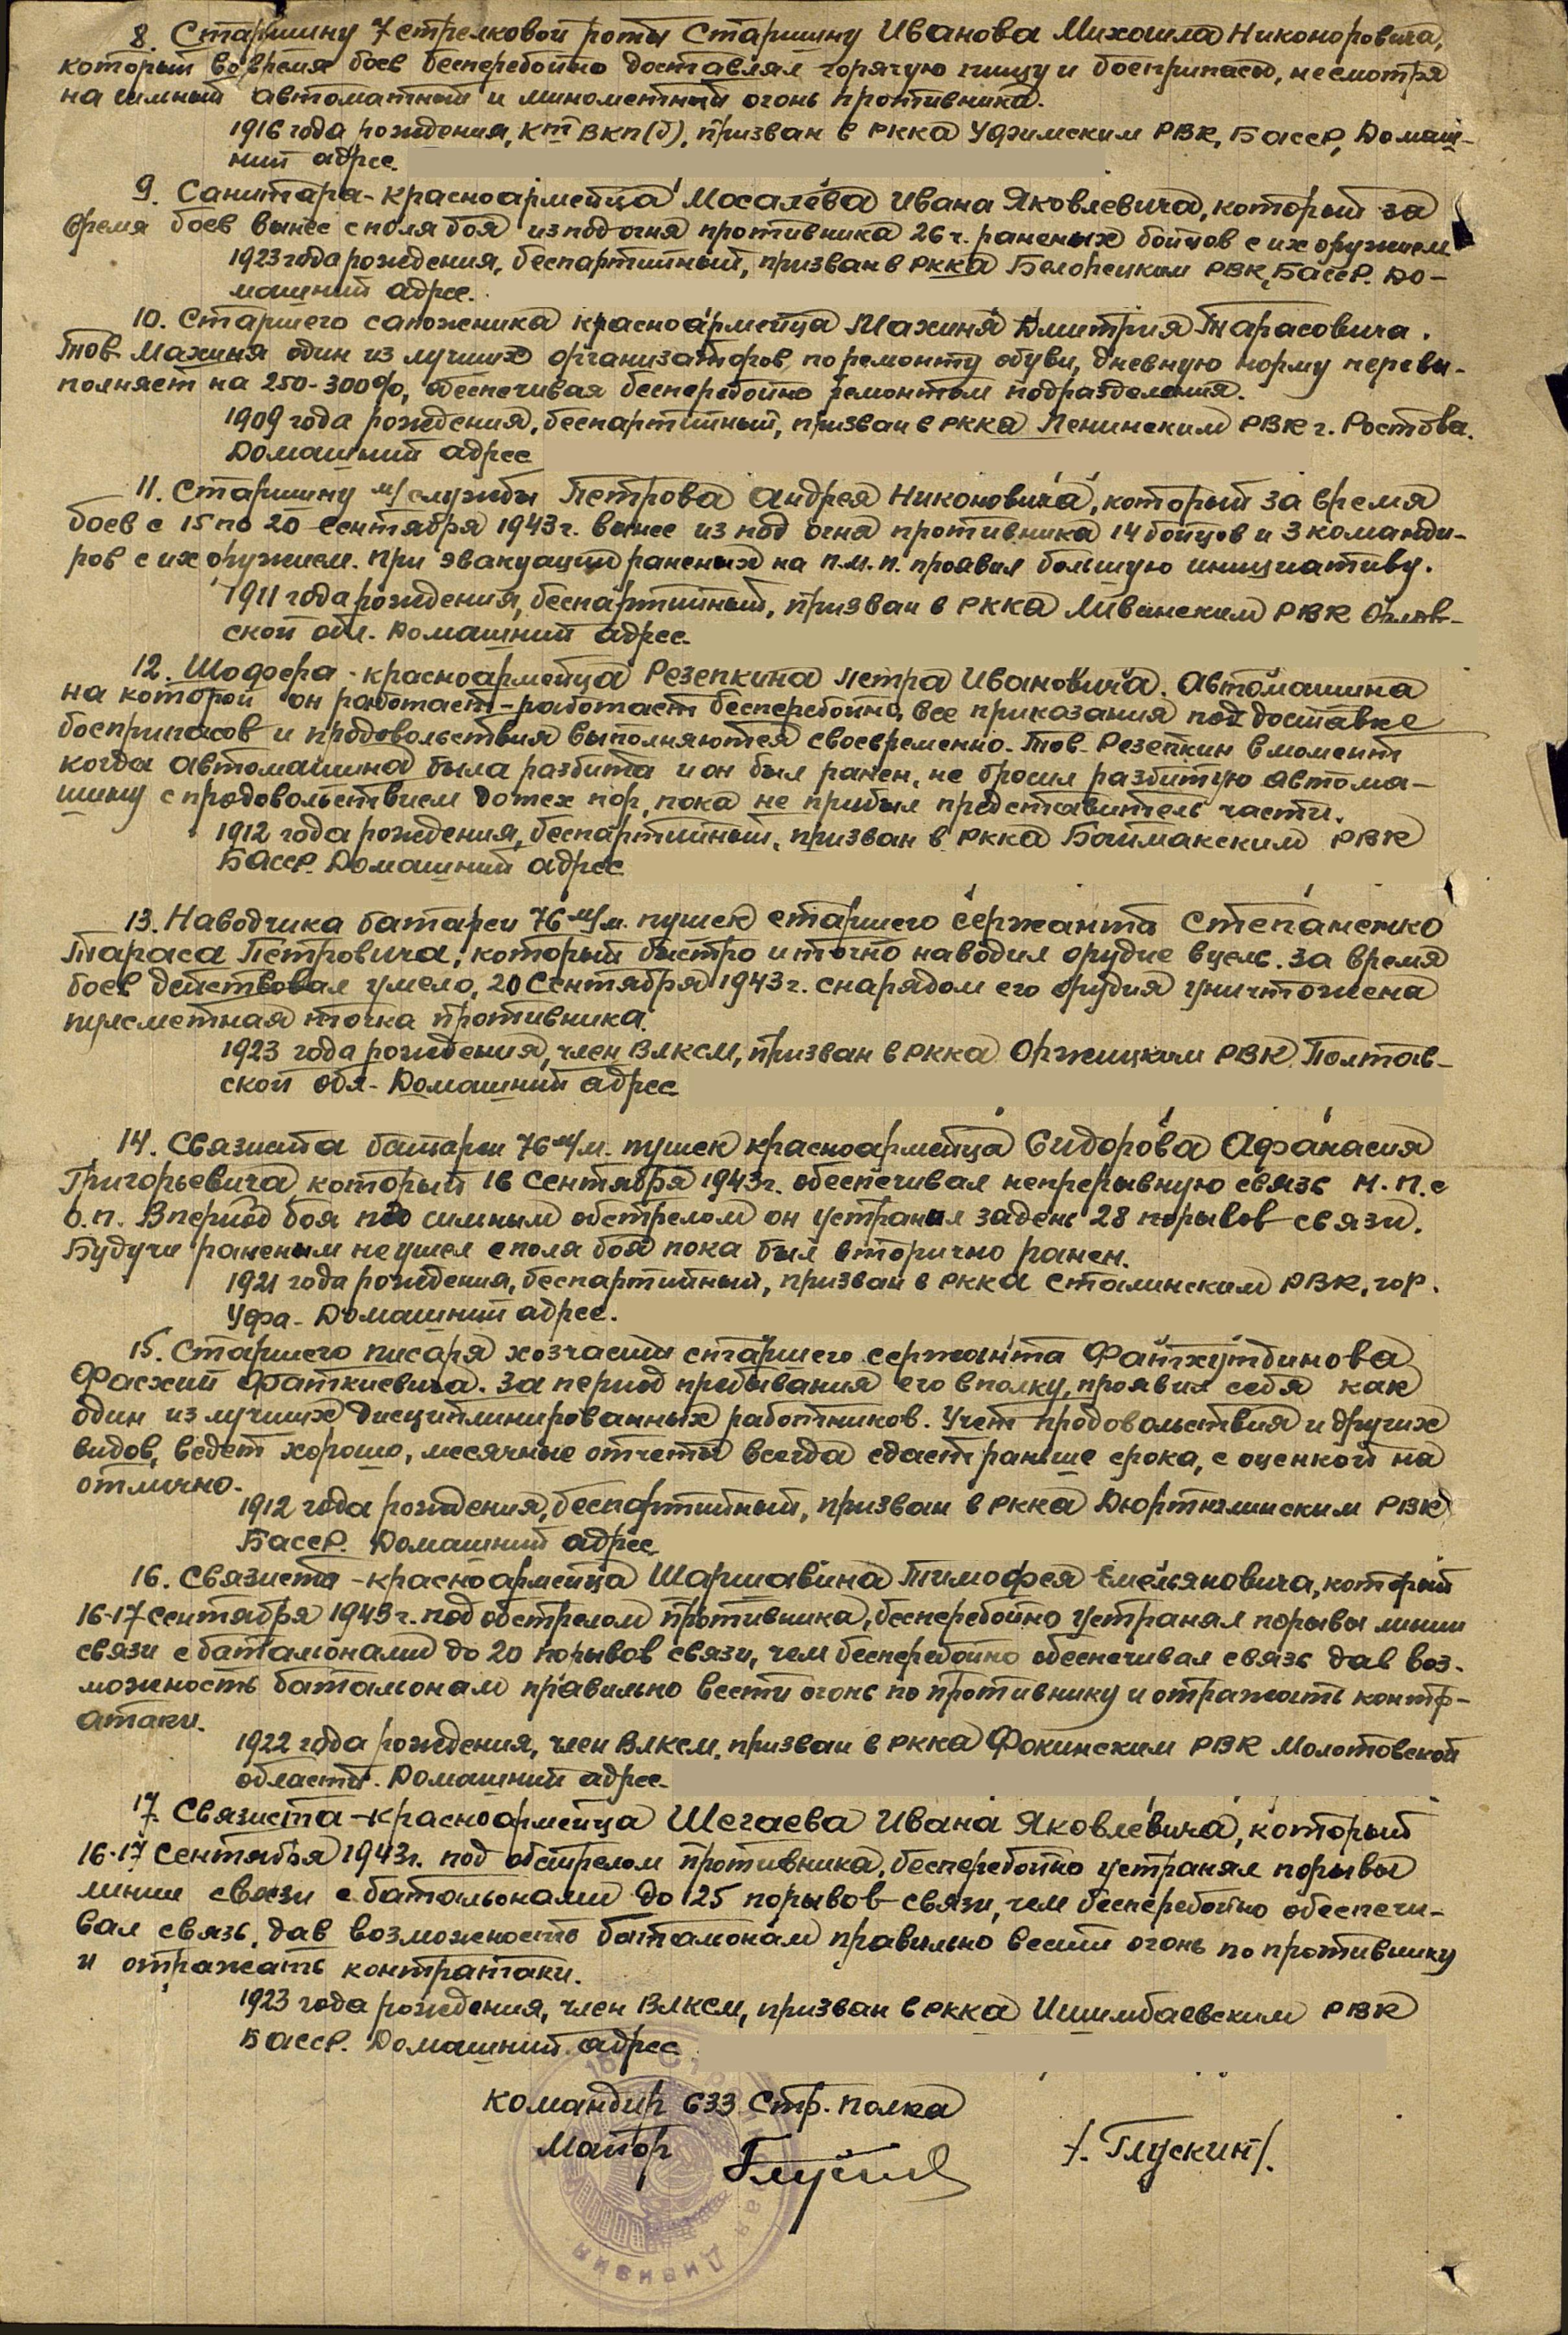 8. Старшину 7 стрелковой роты Старшину Иванова Михаила Никоноровича,
который во время боев бесперебойно доставлял горячую пищу и боеприпасы, несмотря
на сильный автоматный и минометный огонь противника.
1916 года рождения, Кт ВКП(б), призван в РККА Уфимским РВК, БАССР, Домаш-
ний адрес.
9. Санитара - красноармейца Мосалёва Ивана Яковлевича, который за
время боев вынес с поля боя из под огня противника 26 ч. раненых бойцов с их оружием.
1923 года рождения, беспартийный, призван в РККА Белорецким РВК, БАССР. До-
машний адрес.
10. Старшего сапожника красноармейца Махиня Дмитрия Тарасовича.
Тов. Махиня один из лучших организаторов, по ремонту обуви, дневную норму перевы-
полняет на 250-300%, обеспечивая бесперебойно ремонтом подразделения.
1909 года рождения, беспартийный, призван в РККА Ленинским РВК г. Ростова.
Домашний адрес
11. Старшину м/службы Петрова Андрея Никоновича, который за время
боев с 15 по 20 сентября 1943 г. вынес из под огня противника 14 бойцов и 3 команди-
ров с их оружием. При эвакуации раненых на п.м.п. проявил большую инициативу.
1911 года рождения, беспартийный, призван в РККА Ливенским РВК Орлов-
ской обл. Домашний адрес.
12. Шофера - красноармейца Резепкина Петра Ивановича. Автомашина
на которой он работает - работает бесперебойно, все приказания под доставке
боеприпасов и продовольствия выполняются своевременно. Тов. Резепкин в момент
когда автомашина была разбита и он был ранен, не бросил разбитую автома-
шину с продовольствием до тех пор, пока не прибыл представитель части.
1912 года рождения, беспартийный, призван в РККА Баймакским РВК
БАССР. Домашний адрес
13. Наводчика батареи 76 м/м. пушек старшего сержанта Степаненко
Тараса Петровича, который быстро и точно наводил орудие в цель. За время
боев действовал умело, 20 Сентября 1943 г. снарядом его орудия уничтожена
пулеметная точка противника.
1923 года рождения, член ВЛКСМ, призван в РККА Оржицким РВК Полтав-
ской обл. Домашний адрес
14. Связиста батареи 76 м/м. пушек красноармейца Сидорова Афанасия
Григорьевича который 16 Сентября 1943 г. обеспечивал непрерывную связь Н.П. с
О.П. В период боя под сильным обстрелом он устранил за день 28 порывов связи.
Будучи раненым не ушел с поля боя пока был вторично ранен.
1921 года рождения, беспартийный, призван в РККА Сталинским РВК, гор.
Уфа. Домашний адрес.
15. Старшего писаря хозчасти старшего сержанта Фатхутдинова
Фасхий Фаткиевича. За период пребывания его в полку, проявил себя как
один из лучших дисциплинированных работников. Учет продовольствия и других
видов, ведет хорошо, месячные отчеты всегда сдает раньше срока, с оценкой на
отлично.
1912 года рождения, беспартийный, призван в РККА Дюртюлинским РВК
БАССР. Домашний адрес
16. Связиста - красноармейца Шаршавина Тимофея Емельяновича, который
16-17 сентября 1943 г. под обстрелом противника, бесперебойно устранял порывы линии
связи с батальонами до 20 порывов связи, чем бесперебойно обеспечивал связь дав воз-
можность батальонам правильно вести огонь по противнику и отражать контр-
атаки.
1922 года рождения, член ВЛКСМ, призван в РККА Фокинским РВК Молотовской
области. Домашний адрес.
17. Связиста - красноармейца Шегаева Ивана Яковлевича, который
16-17 Сентября 1943 г. под обстрелом противника, бесперебойно устранял порывы
линии связи с батальонами до 25 порывов связи, чем бесперебойно обеспечи-
вал связь, дав возможность батальонам правильно вести огонь по противнику
и отражать контратаки.
1923 года рождения, член ВЛКСМ, призван в РККА Ишимбаевским РВК
БАССР. Домашний адрес
Командир 633 Стр. полка
Майор
/. Глускин/.
дивизия